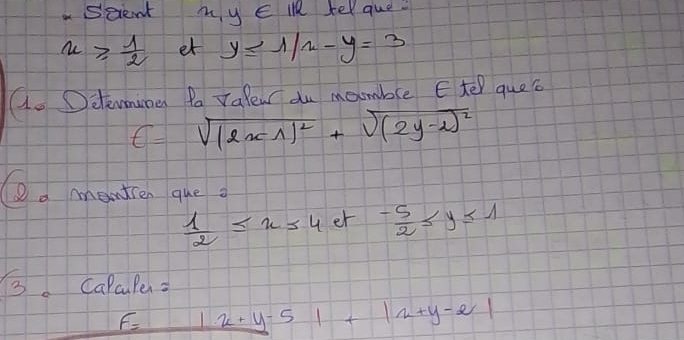 . Soient x, y ∈ IR tel que:
x ≥ 1/2 et y ≤ 1 / x - y = 3
1. Déterminer la valeur du nombre E tel que:
E = √(2x-1)² + √(2y-2)²
2. montrer que:
1/2 ≤ x ≤ 4 et -5/2 ≤ y ≤ 1
3. Calculer:
F = |x+y-5| + |x+y-2|